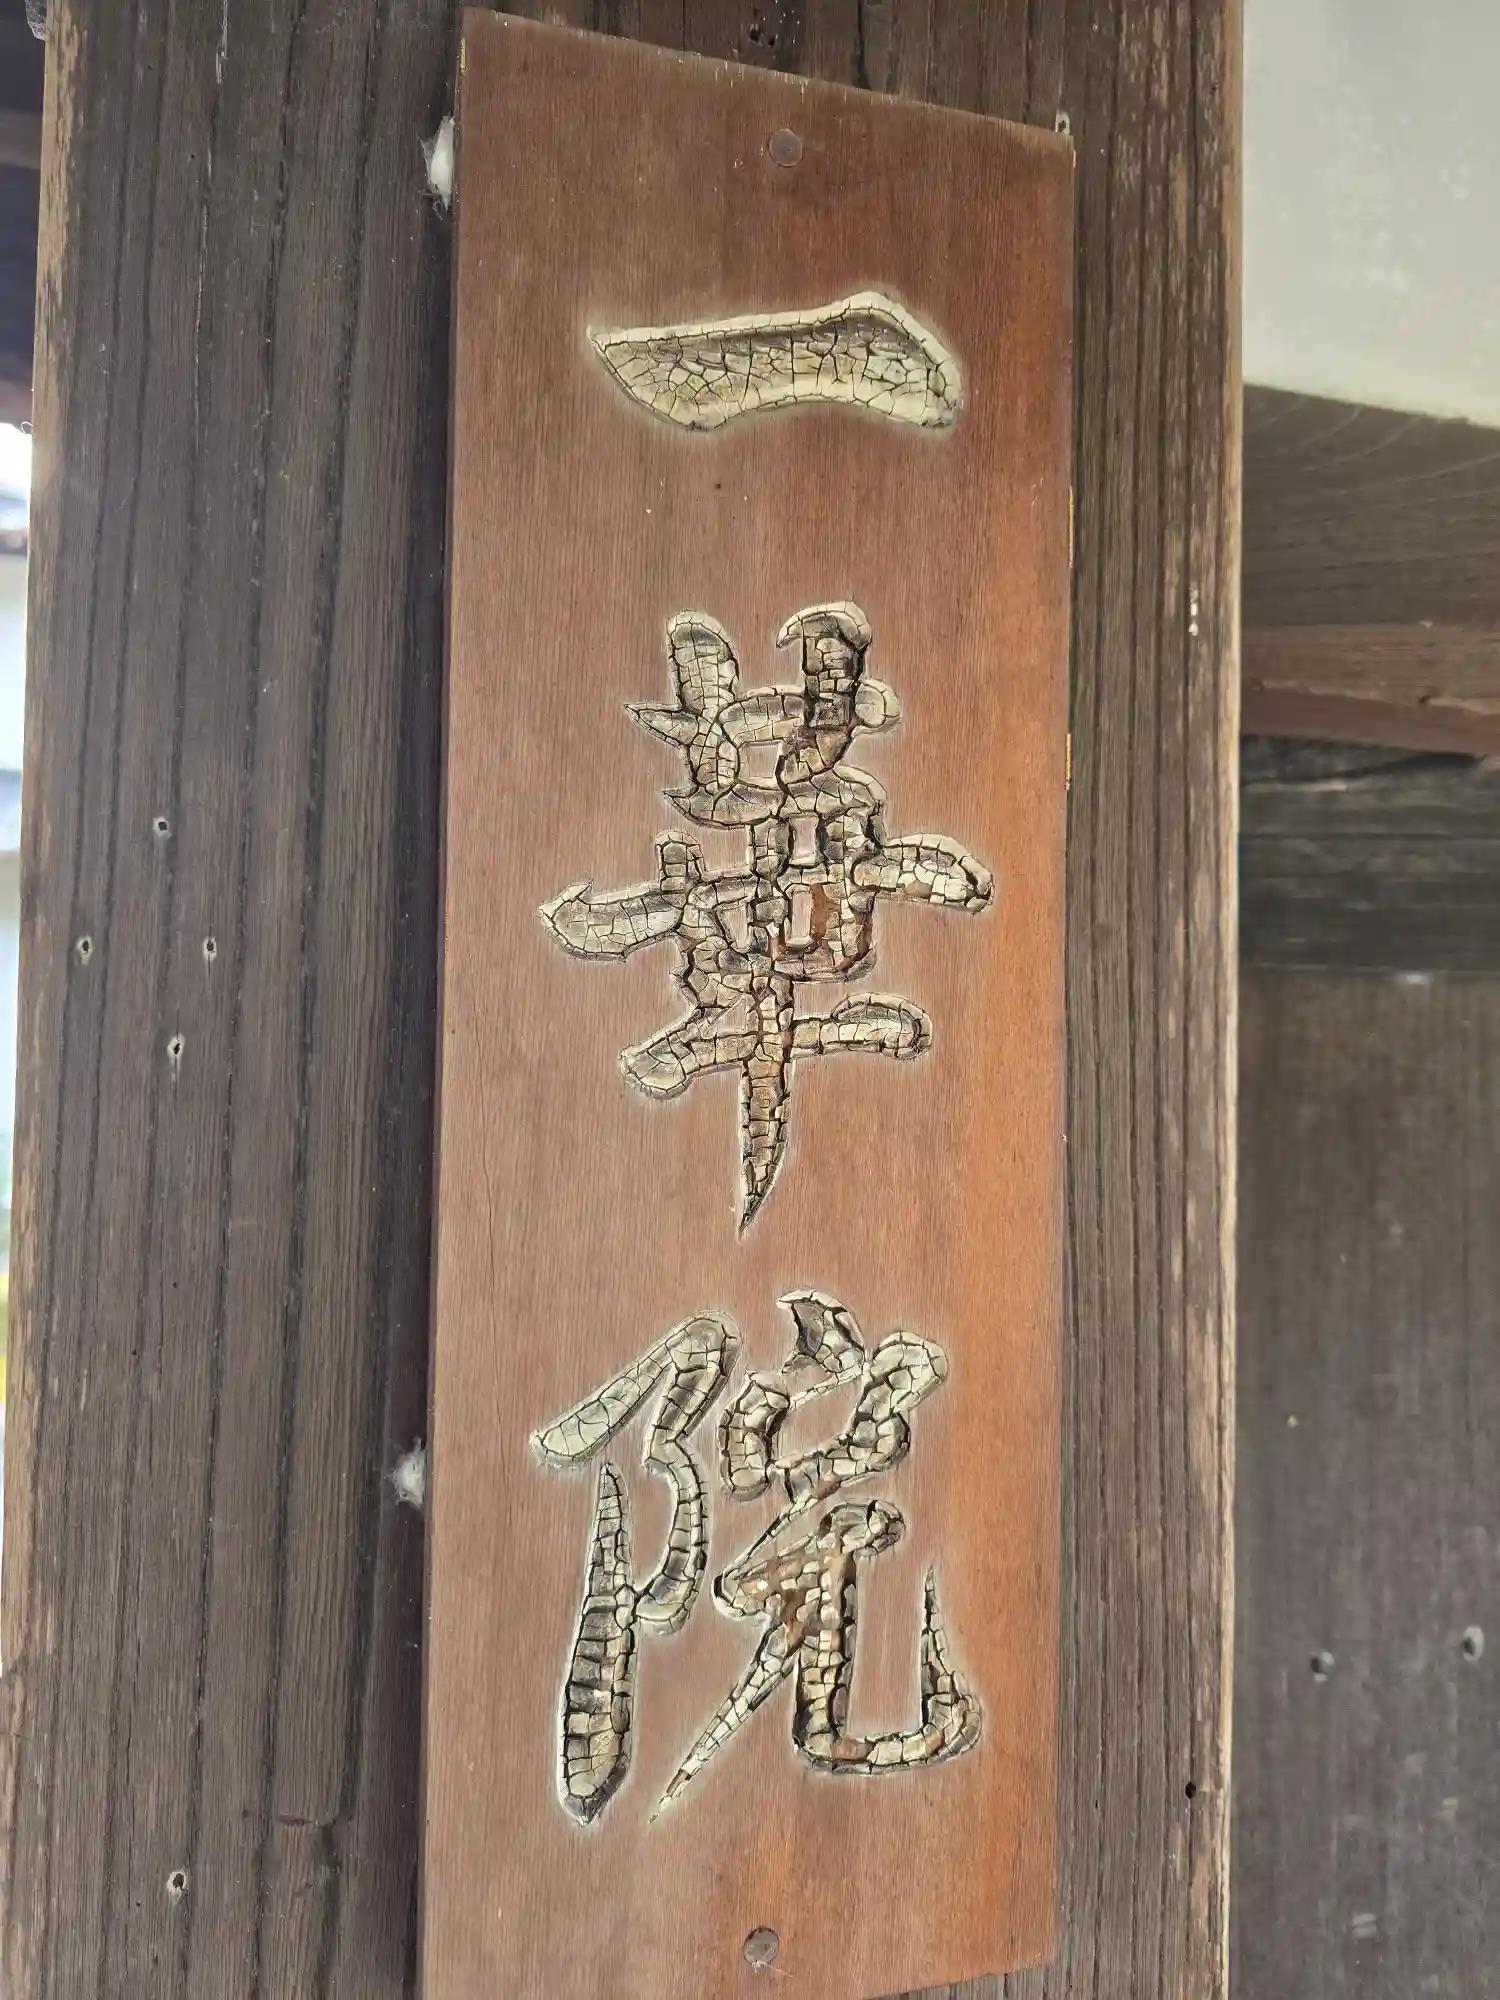 一華院